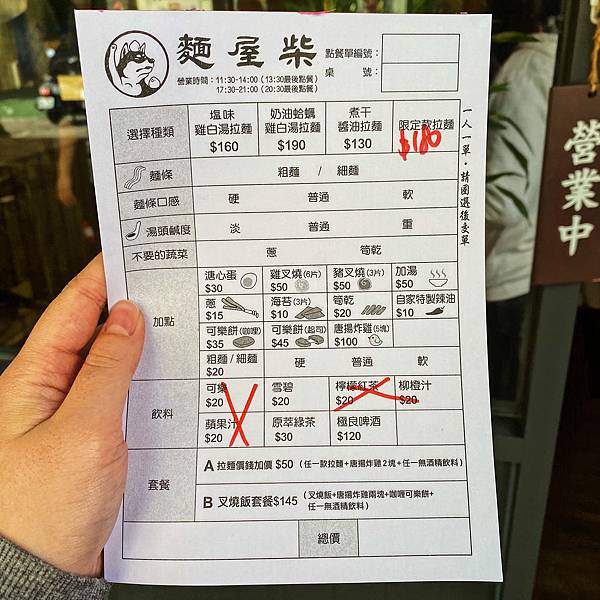 麵屋柴
點餐單編號：
桌 號：
營業時間：11:30-14:00（13:30最後點餐）
17:30-21:00（20:30最後點餐）
選擇種類
塩味
雞白湯拉麵
$160
奶油蛤蠣
雞白湯拉麵
$190
煮干
醬油拉麵
$130
限定款拉麵
$180
一人一單・請圈選後交單
麵條
粗麵 / 細麵
麵條口感
硬 普通 軟
湯頭鹹度
淡 普通 重
不要的蔬菜
蔥 筍乾
加點
溏心蛋
$30
雞叉燒(6片)
$50
豬叉燒(3片)
$50
加湯
$50
蔥
$15
海苔(3片)
$10
筍乾
$20
自家特製辣油
$10
可樂餅(咖哩)
$35
可樂餅(起司)
$45
唐揚炸雞(5塊)
$100
粗麵/細麵
$20
硬 普通 軟
飲料
可樂
$20
雪碧
$20
檸檬紅茶
$20
柳橙汁
$20
蘋果汁
$20
原萃綠茶
$30
極良啤酒
$120
套餐
A 拉麵價錢加價 $50（任一款拉麵+唐揚炸雞2塊+任一無酒精飲料）
B 叉燒飯套餐$145（叉燒飯+唐揚炸雞兩塊+咖哩可樂餅+
任一無酒精飲料）
總價
營業中